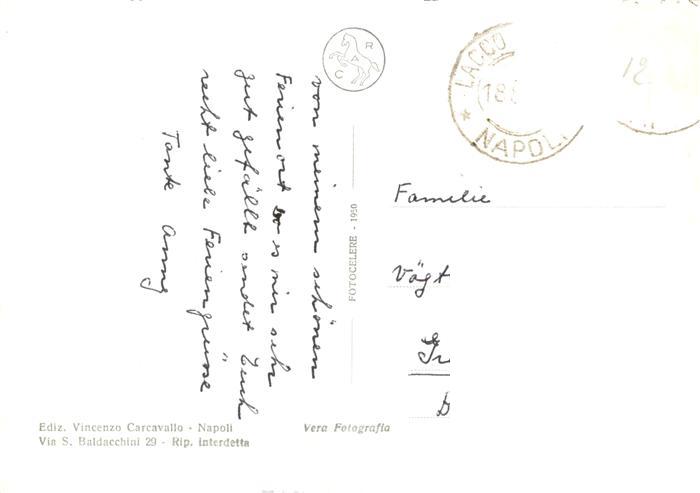 von meinem schönen
Ferienort wo es mir sehr
gut gefällt sendet Euch
recht liebe Feriengrüsse
Tante Anny
R
A
C
FOTOCELERE - 1950
LACCO
18.
NAPOL
12
Familie
Vögt
Ediz. Vincenzo Carcavallo - Napoli
Via S. Baldacchini 29 - Rip. interdetta
Vera Fotografia